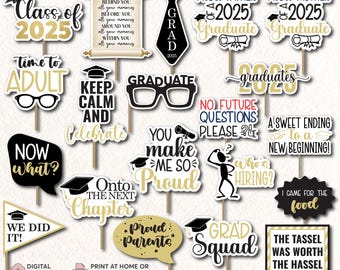 Class of
2025
BEHIND YOU
all your memory
BEFORE YOU
all your memory
AROUND YOU
all your memory
WITHIN YOU
all your memory
GRAD
2025
2025
Graduate
2025
Graduate
time to
ADULT
KEEP
CALM
AND
Celebrate
GRADUATE
graduates
2025
NO FUTURE
QUESTIONS
PLEASE
A SWEET ENDING
to a
NEW BEGINNING!
NOW
what?
YOU
make
ME SO
Proud
who's
HIRING?
I CAME FOR THE
food
Onto
THE NEXT
Chapter
WE DID
IT!
Proud
Parents
GRAD
Squad
THE TASSEL
WAS WORTH
THE HASSEL
DIGITAL
PRINT AT HOME OR